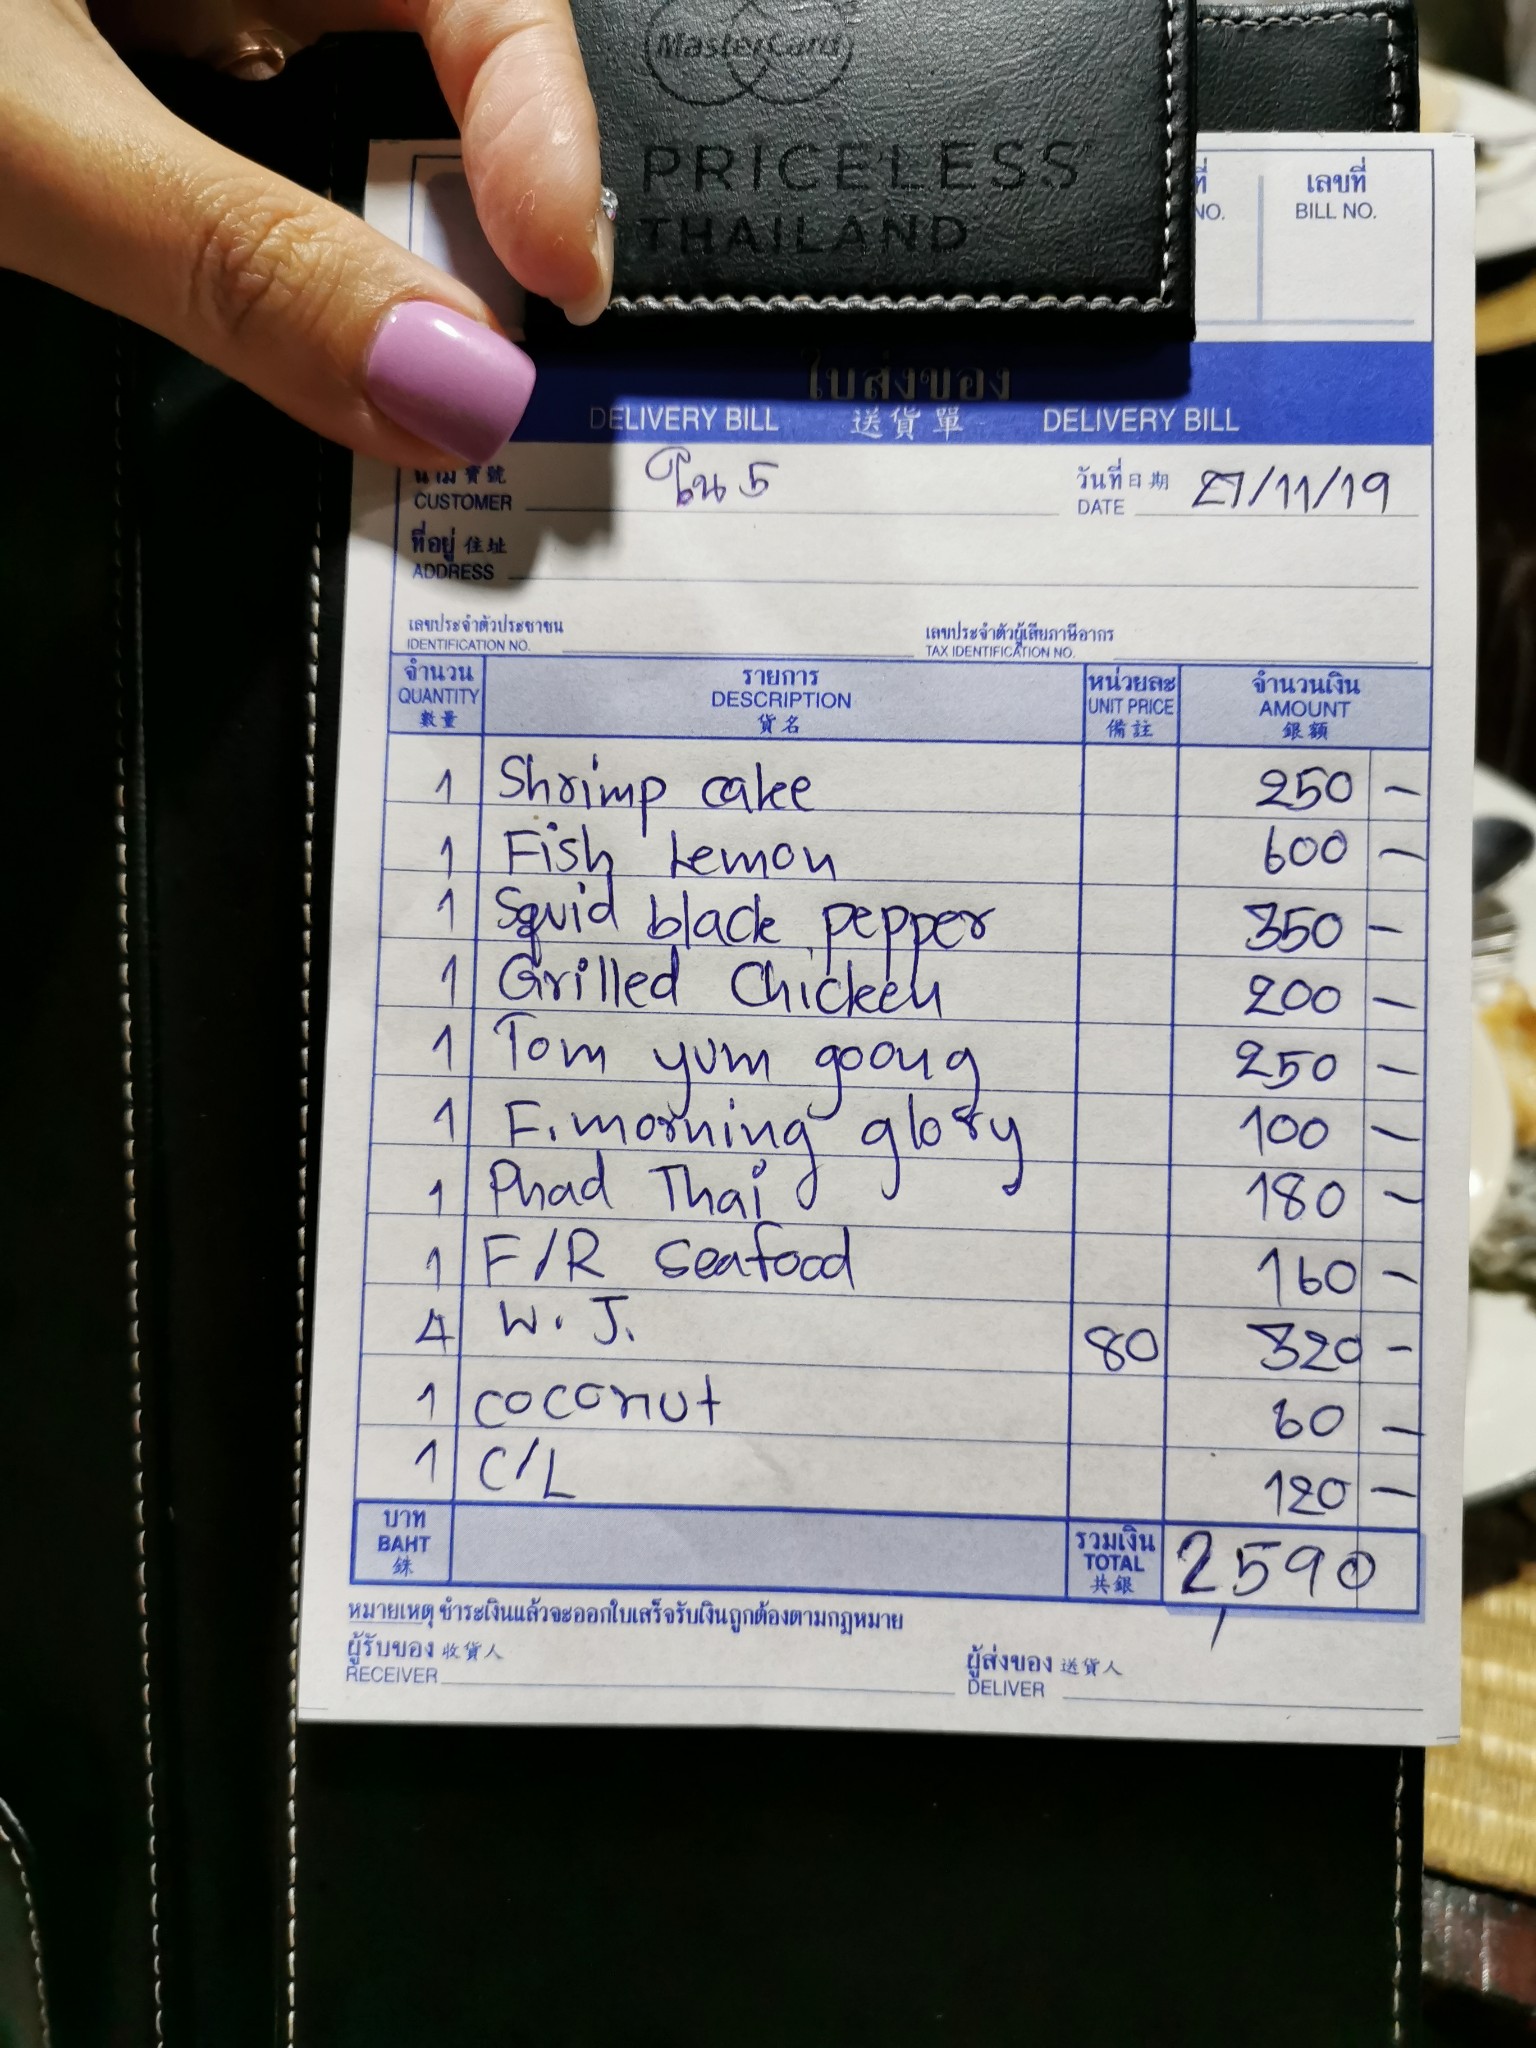 MasterCard
PRICELESS
THAILAND
ที่ เลขที่
NO. BILL NO.
ใบส่งของ
DELIVERY BILL 送貨單 DELIVERY BILL
นาม 寶號 ใน 5 วันที่ 日期 27/11/19
CUSTOMER DATE
ที่อยู่ 住址
ADDRESS
เลขประจำตัวประชาชน เลขประจำตัวผู้เสียภาษีอากร
IDENTIFICATION NO. TAX IDENTIFICATION NO.
จำนวน รายการ หน่วยละ จำนวนเงิน
QUANTITY DESCRIPTION UNIT PRICE AMOUNT
數量 貨名 備註 銀額
1 Shrimp cake 250 -
1 Fish Lemon 600 -
1 Squid black pepper 350 -
1 Grilled Chicken 200 -
1 Tom yum goong 250 -
1 F. morning glory 100 -
1 Phad Thai 180 -
1 F/R Seafood 160 -
4 W. J. 80 320 -
1 coconut 60 -
1 C/L 120 -
บาท รวมเงิน
BAHT TOTAL 2590
銖 共銀
หมายเหตุ ชำระเงินแล้วจะออกใบเสร็จรับเงินถูกต้องตามกฎหมาย
ผู้รับของ 收貨人 ผู้ส่งของ 送貨人
RECEIVER DELIVER